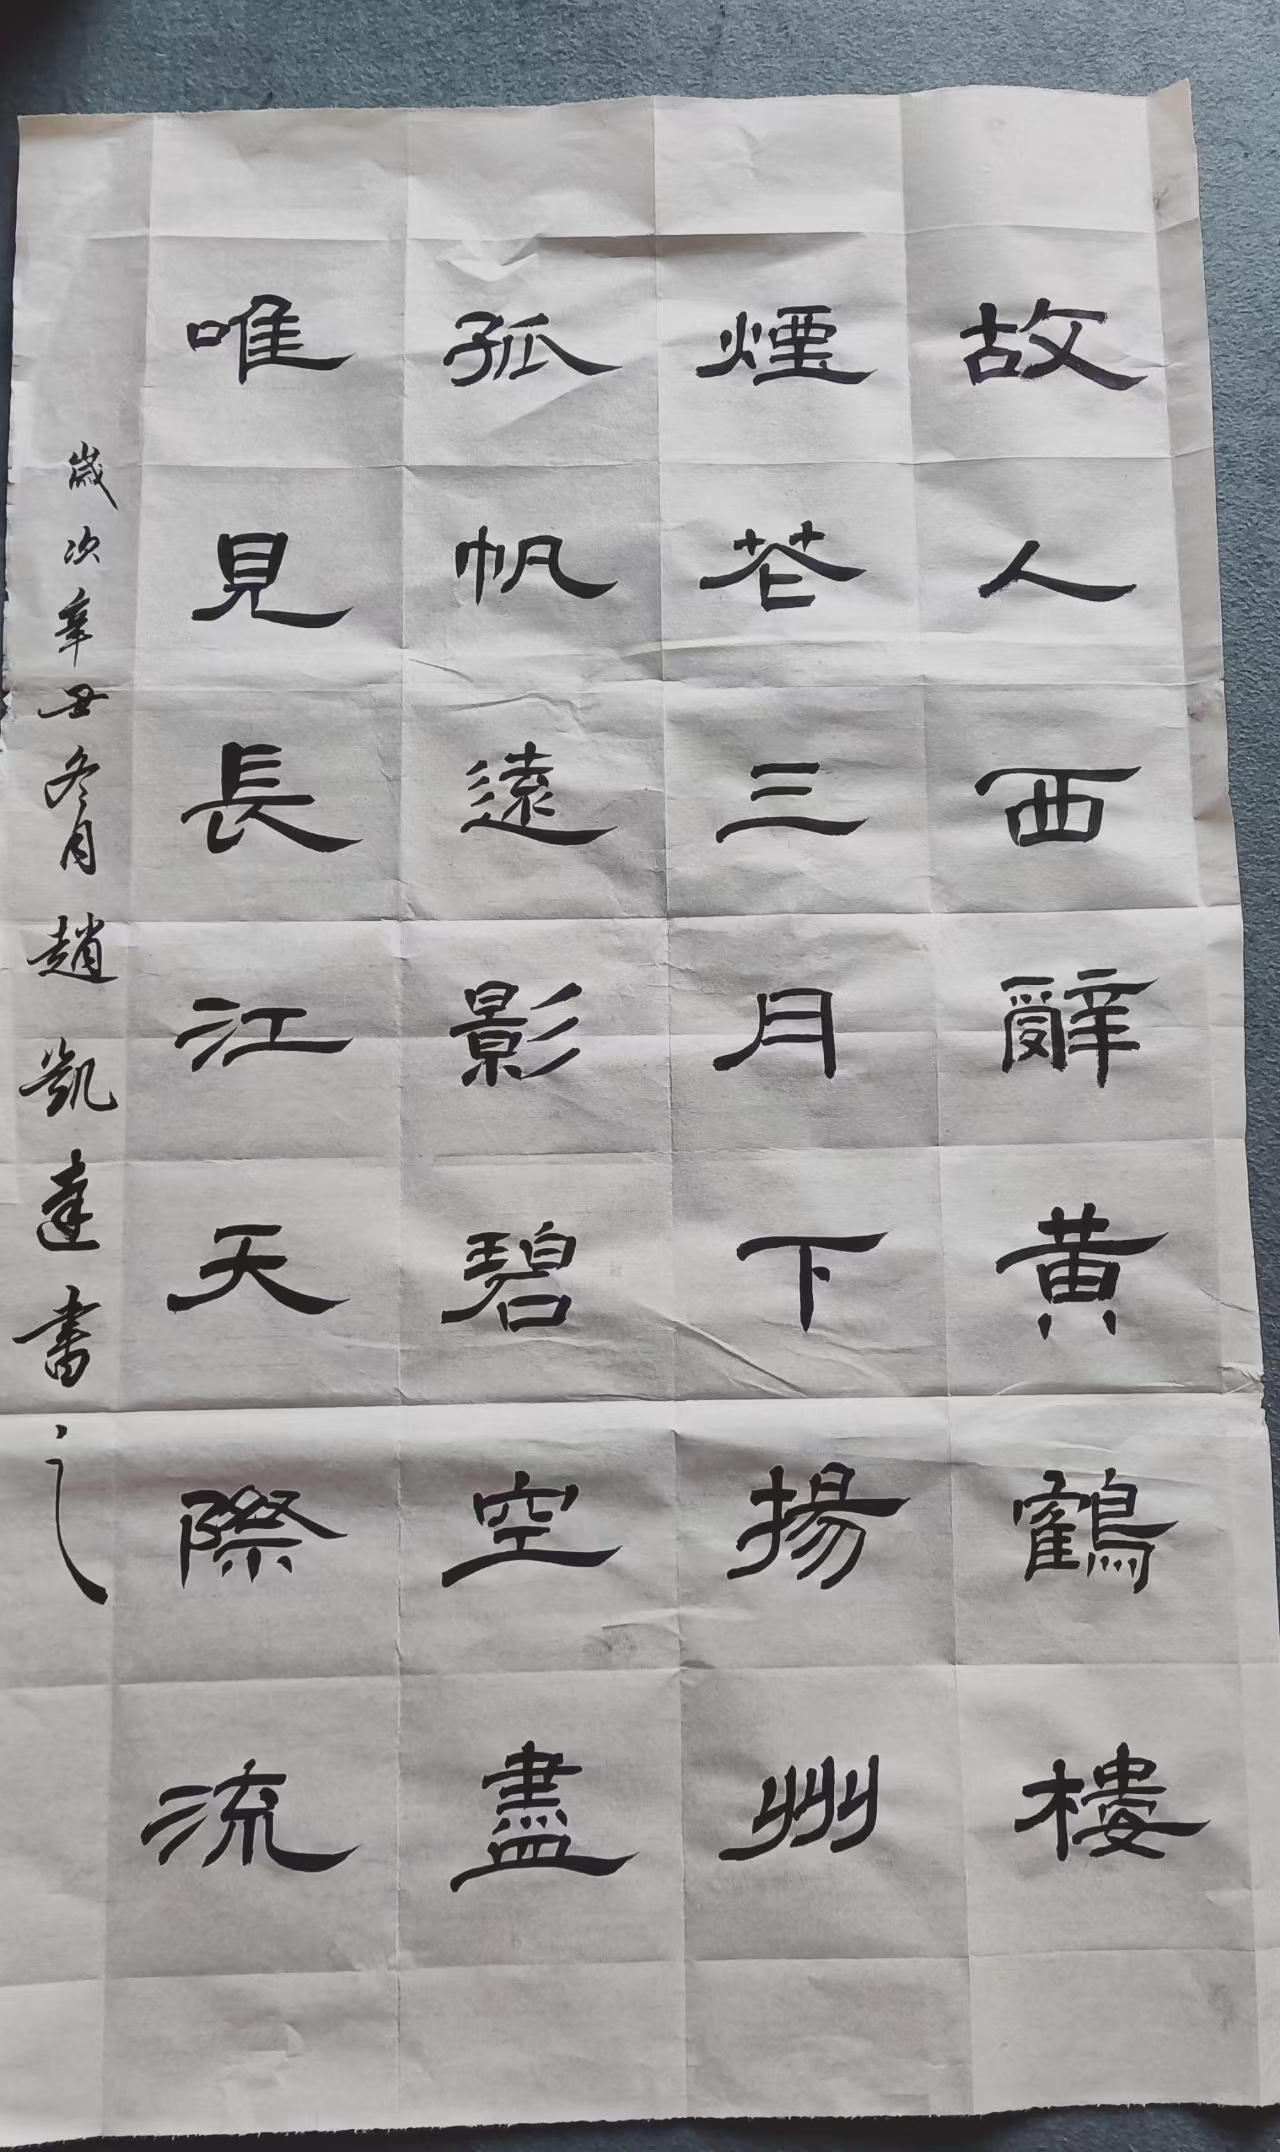 故人西辭黄鶴樓
煙花三月下揚州
孤帆遠影碧空盡
唯見長江天際流
歲次辛丑冬月趙凱達書之